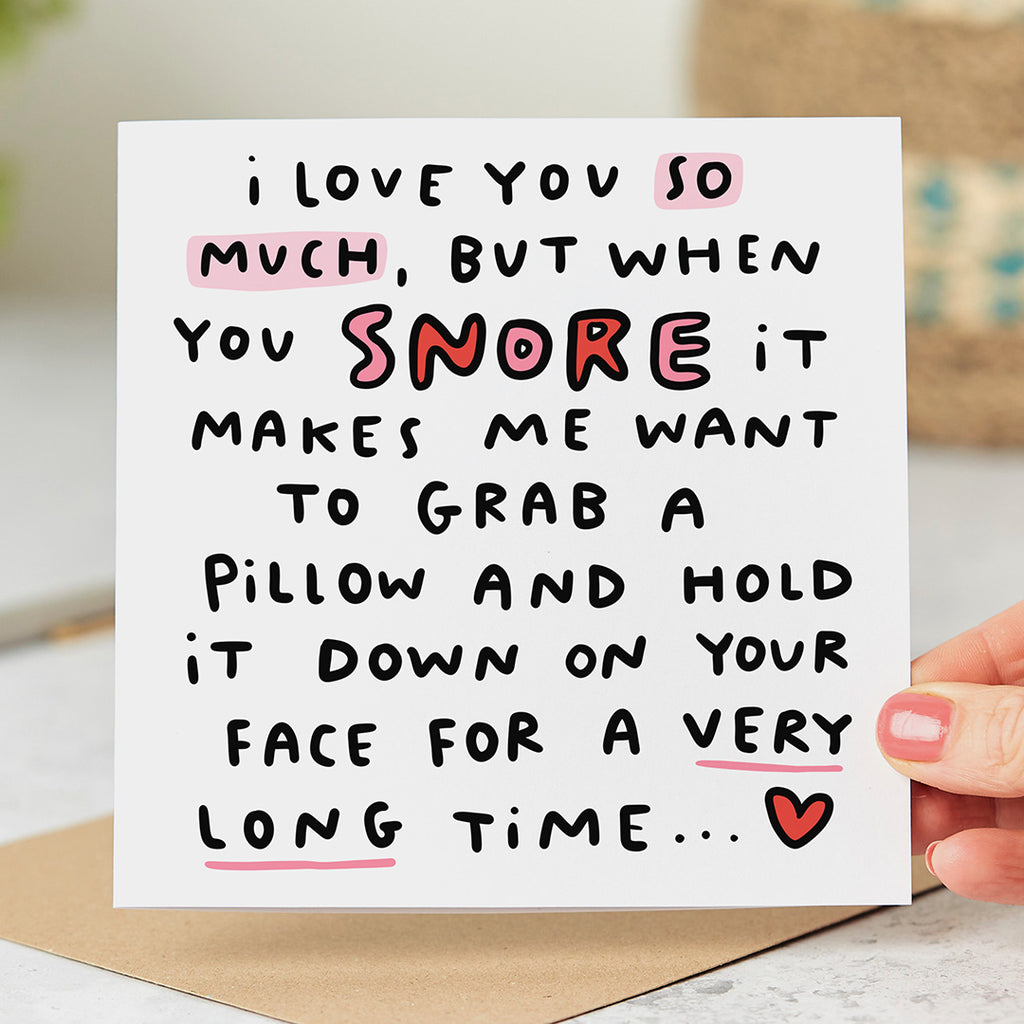 i LOVE YOU SO
MUCH, BUT WHEN
YOU SNORE iT
MAKES ME WANT
TO GRAB A
PiLLOW AND HOLD
iT DOWN ON YOUR
FACE FOR A VERY
LONG TiME...